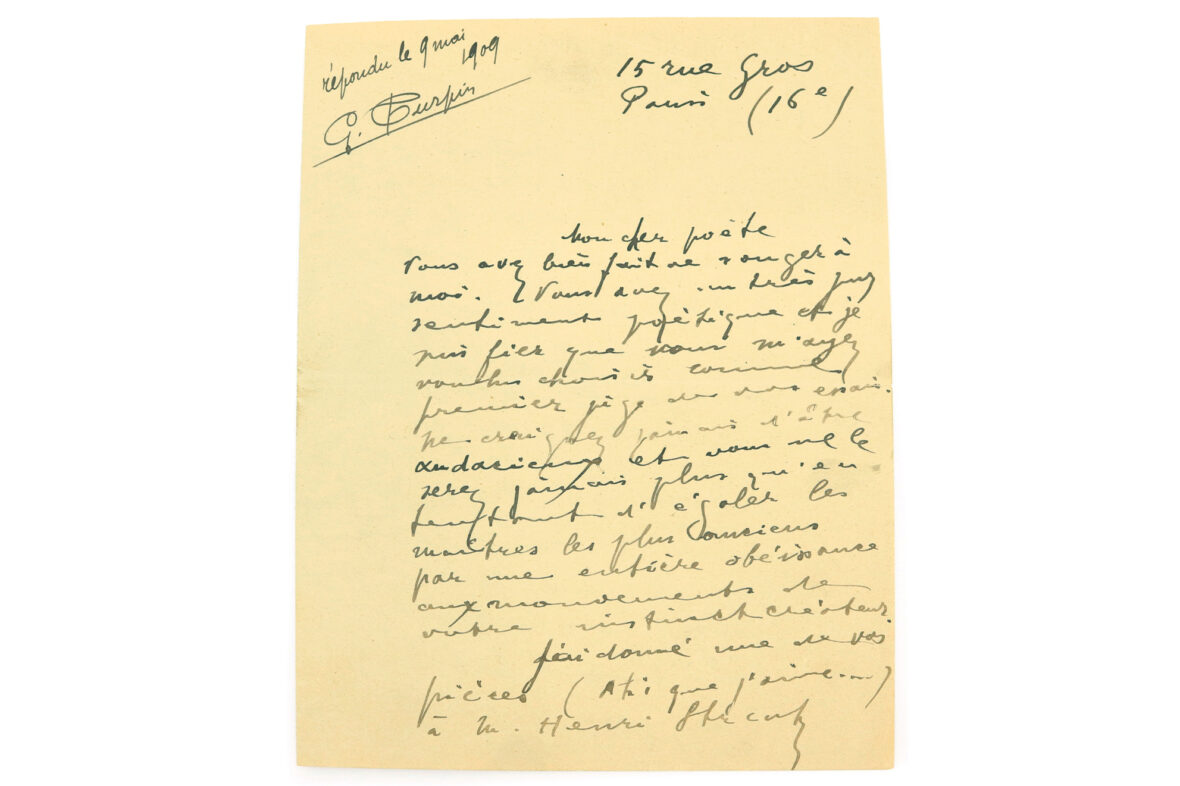 répondu le 9 mai
1909
G. Turpin
15 rue Gros
Paris (16e)
Mon cher poète
Vous avez bien fait de songer à
moi. Vous avez un très pur
sentiment poétique et je
suis fier que vous m'ayez
voulu choisir comme
premier juge de vos essais.
Ne craignez jamais d'être
audacieux et vous ne le
serez jamais plus qu'en
tentant d'égaler les
maîtres les plus anciens
par une entière obéissance
aux mouvements de
votre instinct créateur.
J'ai donné une de vos
pièces (Ah! que j'aime....)
à M. Henri